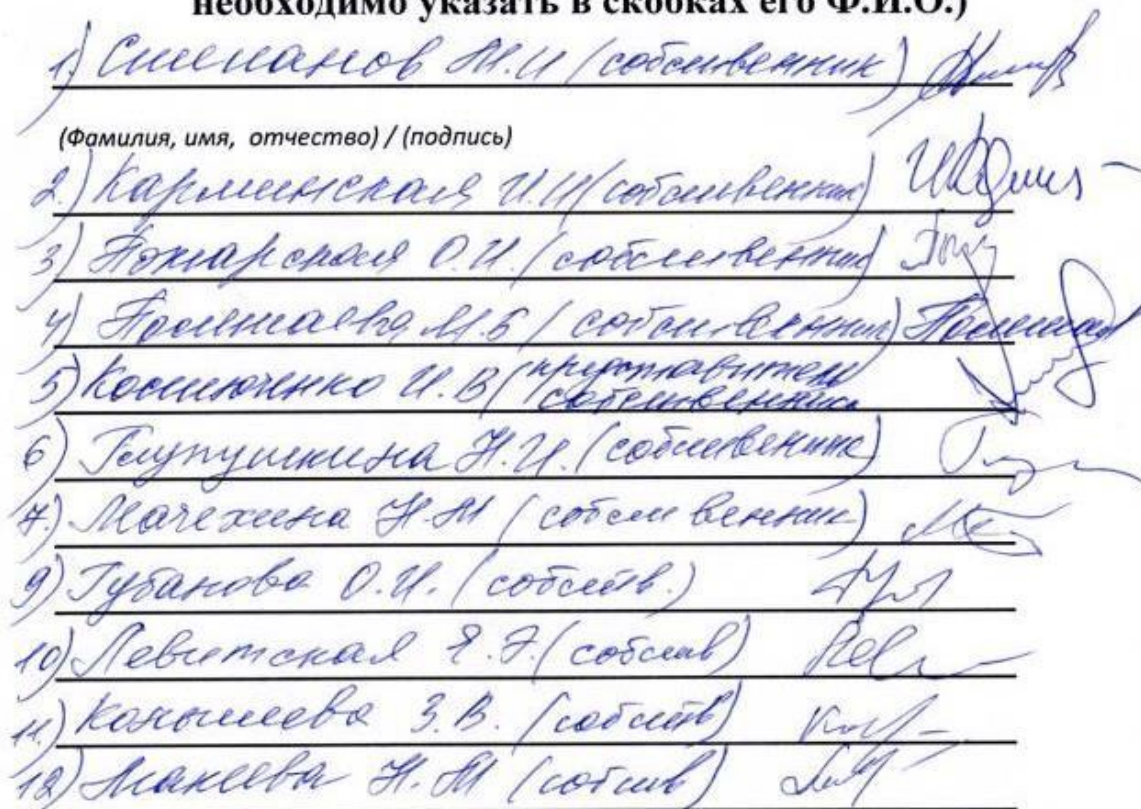 необходимо указать в скобках его Ф.И.О.)
1) Степанов М.И (собственник)
(Фамилия, имя, отчество) / (подпись)
2.) Карминская И.И (собственник)
3) Пожарская О.И. (собственник)
4) М.Б (собственник)
5) Костюченко И.В (представитель
собственника
6) Н.И. (собственник)
7.) Мачехина Н.М (собственник)
9) Губанова О.И. (собств.)
10) Левитская Е.Э. (собств)
11.) Конышева З.В. (собств)
12) Макеева Н.М (собств)